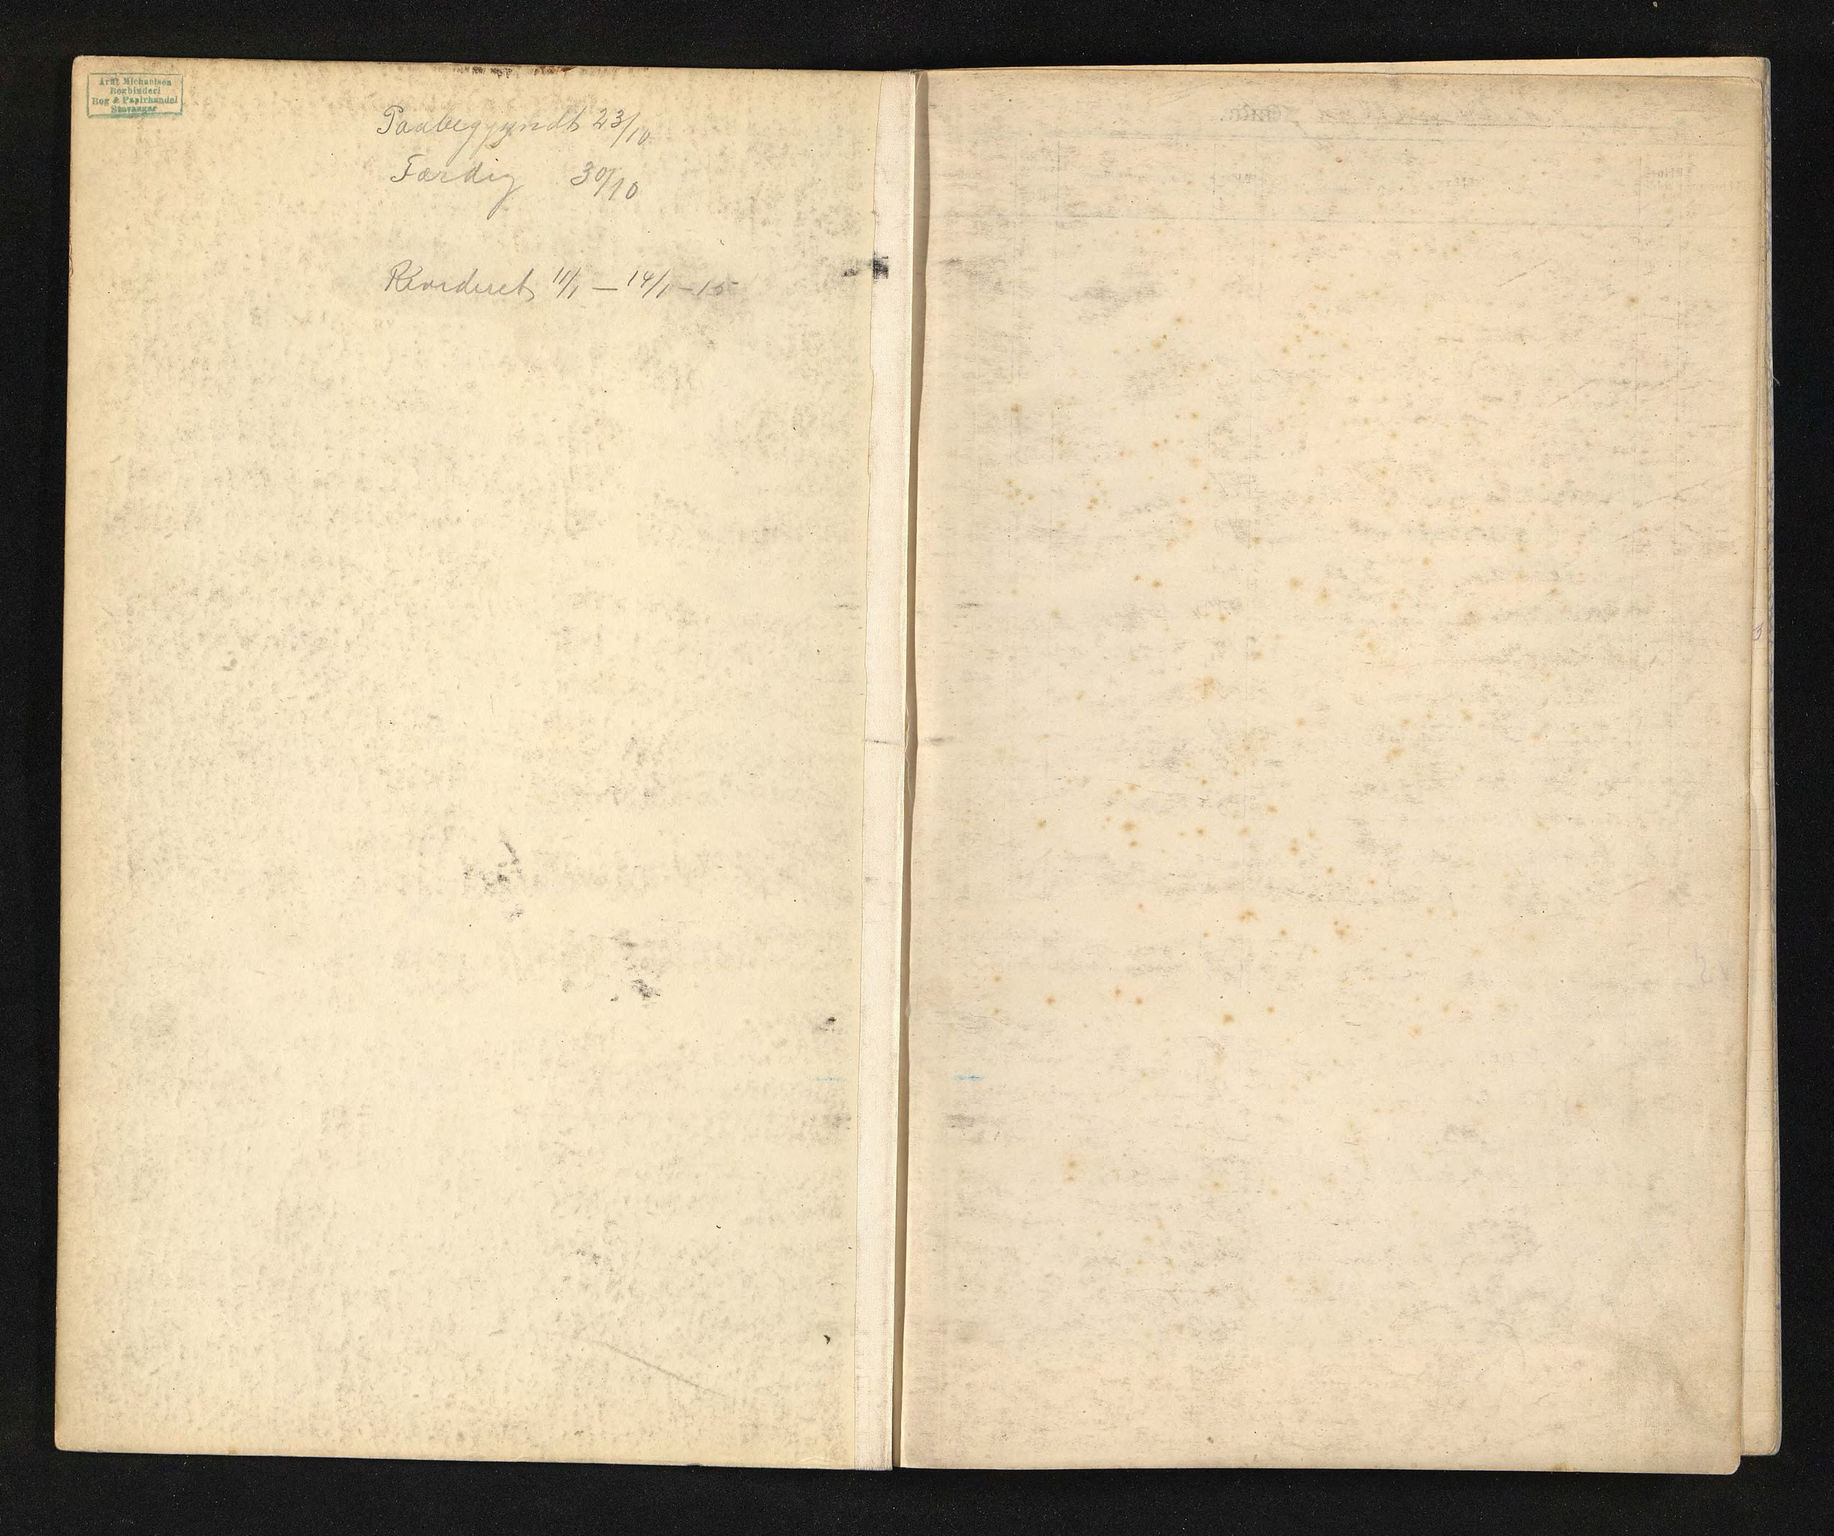 Arnt Michaelsen
Bogbinderi
Bog & Papirhandel
Stavanger
Paabegyyndt 23/10
Færdig 30/10
Revideret 11/1 — 14/1 - 15